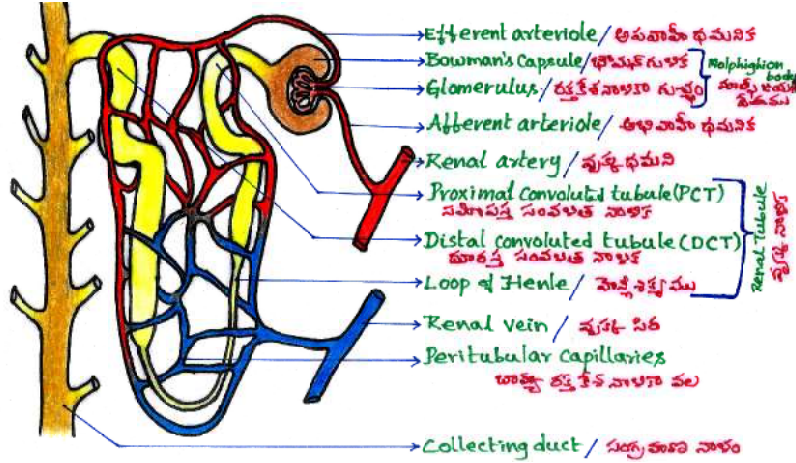 Efferent arteriole / అపవాహీ ధమనిక
Bowman's Capsule / భౌమన్ గుళిక
Glomerulus / రక్తకేశనాళికా గుచ్ఛం
Malphighion body
Afferent arteriole / అభివాహీ ధమనిక
Renal artery / వృక్క ధమని
Proximal convoluted tubule (PCT)
సమీపస్త సంవళిత నాళిక
Distal convoluted tubule (DCT)
దూరస్త సంవళిత నాళిక
Loop of Henle / హెన్లీ శిక్యము
Renal Tubule
వృక్క నాళిక
Renal vein / వృక్క సిర
Peritubular capillaries
బాహ్య రక్త కేశ నాళికా వల
Collecting duct / సంగ్రహణ నాళం